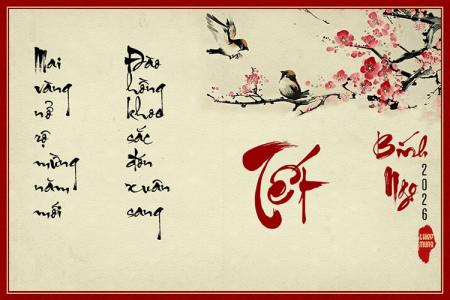 Mai vàng nở rộ mừng năm mới
Đào hồng khoe sắc đón xuân sang
Tết
Bính Ngọ
2026
THIỆP MỪNG